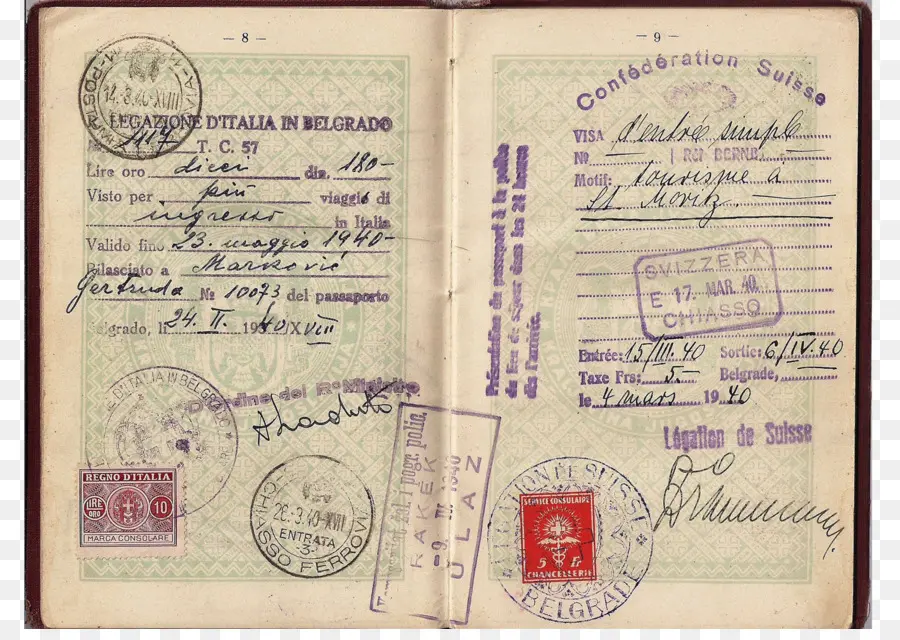 — 8 —
14.3.40-XVIII
LEGAZIONE D'ITALIA IN BELGRADO
№ 1117 T. C. 57
Lire oro dieci din. 180-
Visto per più viaggi di
ingresso in Italia
Valido fino 23. maggio 1940-
Rilasciato a Marković
Gertruda № 10073 del passaporto
Belgrado, li 24. II. 1940/XVIII
D'Ordine del R° Ministro
D'ITALIA IN BELGRADO
REGNO D'ITALIA
LIRE ORO 10
MARCA CONSOLARE
CHIASSO FERROVIA
26.3.40-XVIII
ENTRATA
-3-
pogr. polic.
RAKEK
-9. IV 1940
ULAZ
— 9 —
Confédération Suisse
VISA d'entrée simple
№ BERNE
Motif: tourisme à
St. Moritz.
Présentation du passeport à la police
du lieu de séjour dans les 24 heures
de l'arrivée.
SVIZZERA
E 17. MAR. 40.
CHIASSO
Entrée: 15/III. 40 Sortie: 6/IV. 40
Taxe Frs: 5.- Belgrade,
le 4 mars 1940
Légation de Suisse
LEGATION DE SUISSE
SERVICE CONSULAIRE
5 Fr
CHANCELLERIE
BELGRADE